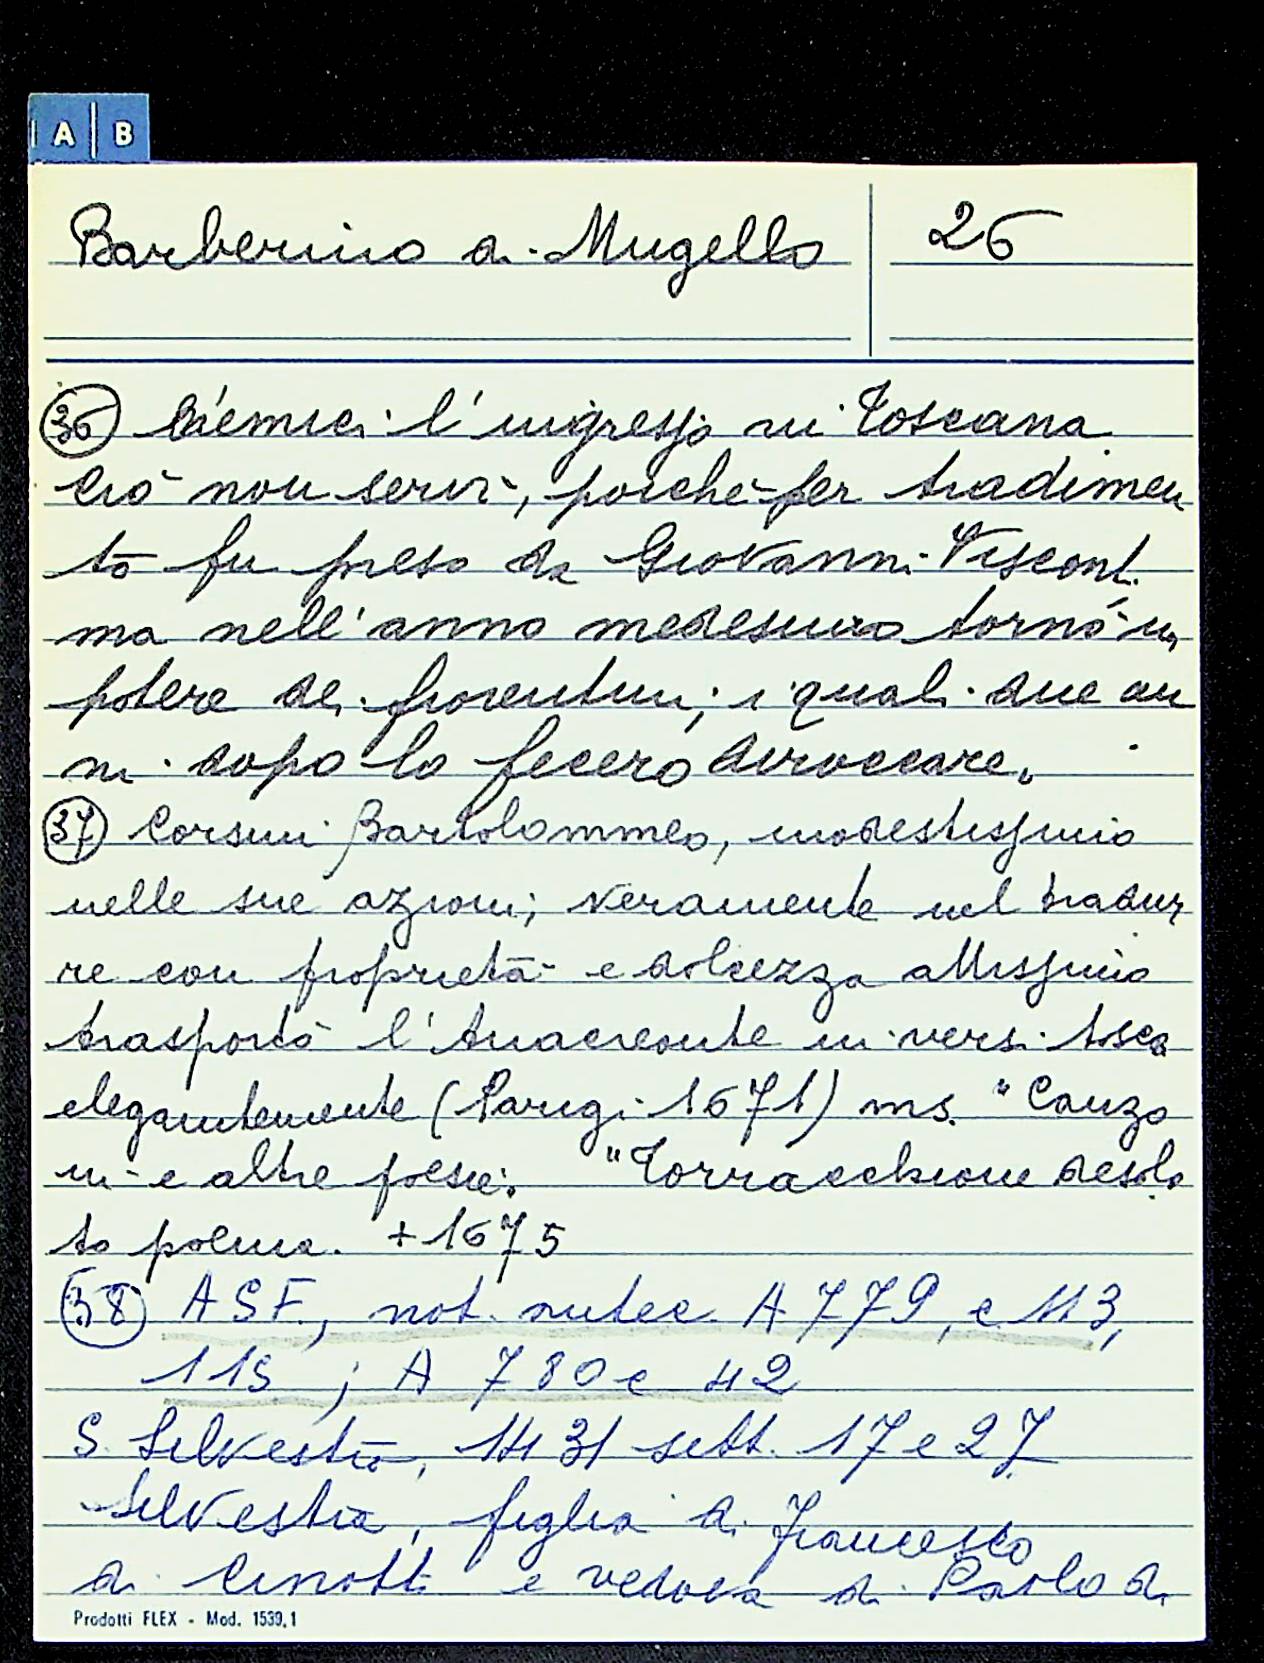 A B
Barberino di Mugello 26
36 l'ingresso in Toscana
Ciò non servì, poichè per tradimen
to fu preso da Giovanni Visconti
ma nell'anno medesimo tornò in
potere dei fiorentini; i quali due an
ni dopo lo fecero diroccare.
37 Corsini Bartolommeo, modestissimo
nelle sue azioni; veramente nel tradur
re con proprietà e dolcezza attissimo
trasportò l'Anacreonte in versi tosca
elegantemente (Parigi 1671) ms. "Canzo
ni e altre poesie. "Torracchione desola
to poema. +1675
38 ASF, not. antec. A 779, c 113,
115; A 780 c 42
S. Silvestro, 1431 sett. 17 e 27
figlia di Francesco
di e vedova di Paolo di
Prodotti FLEX - Mod. 1539.1